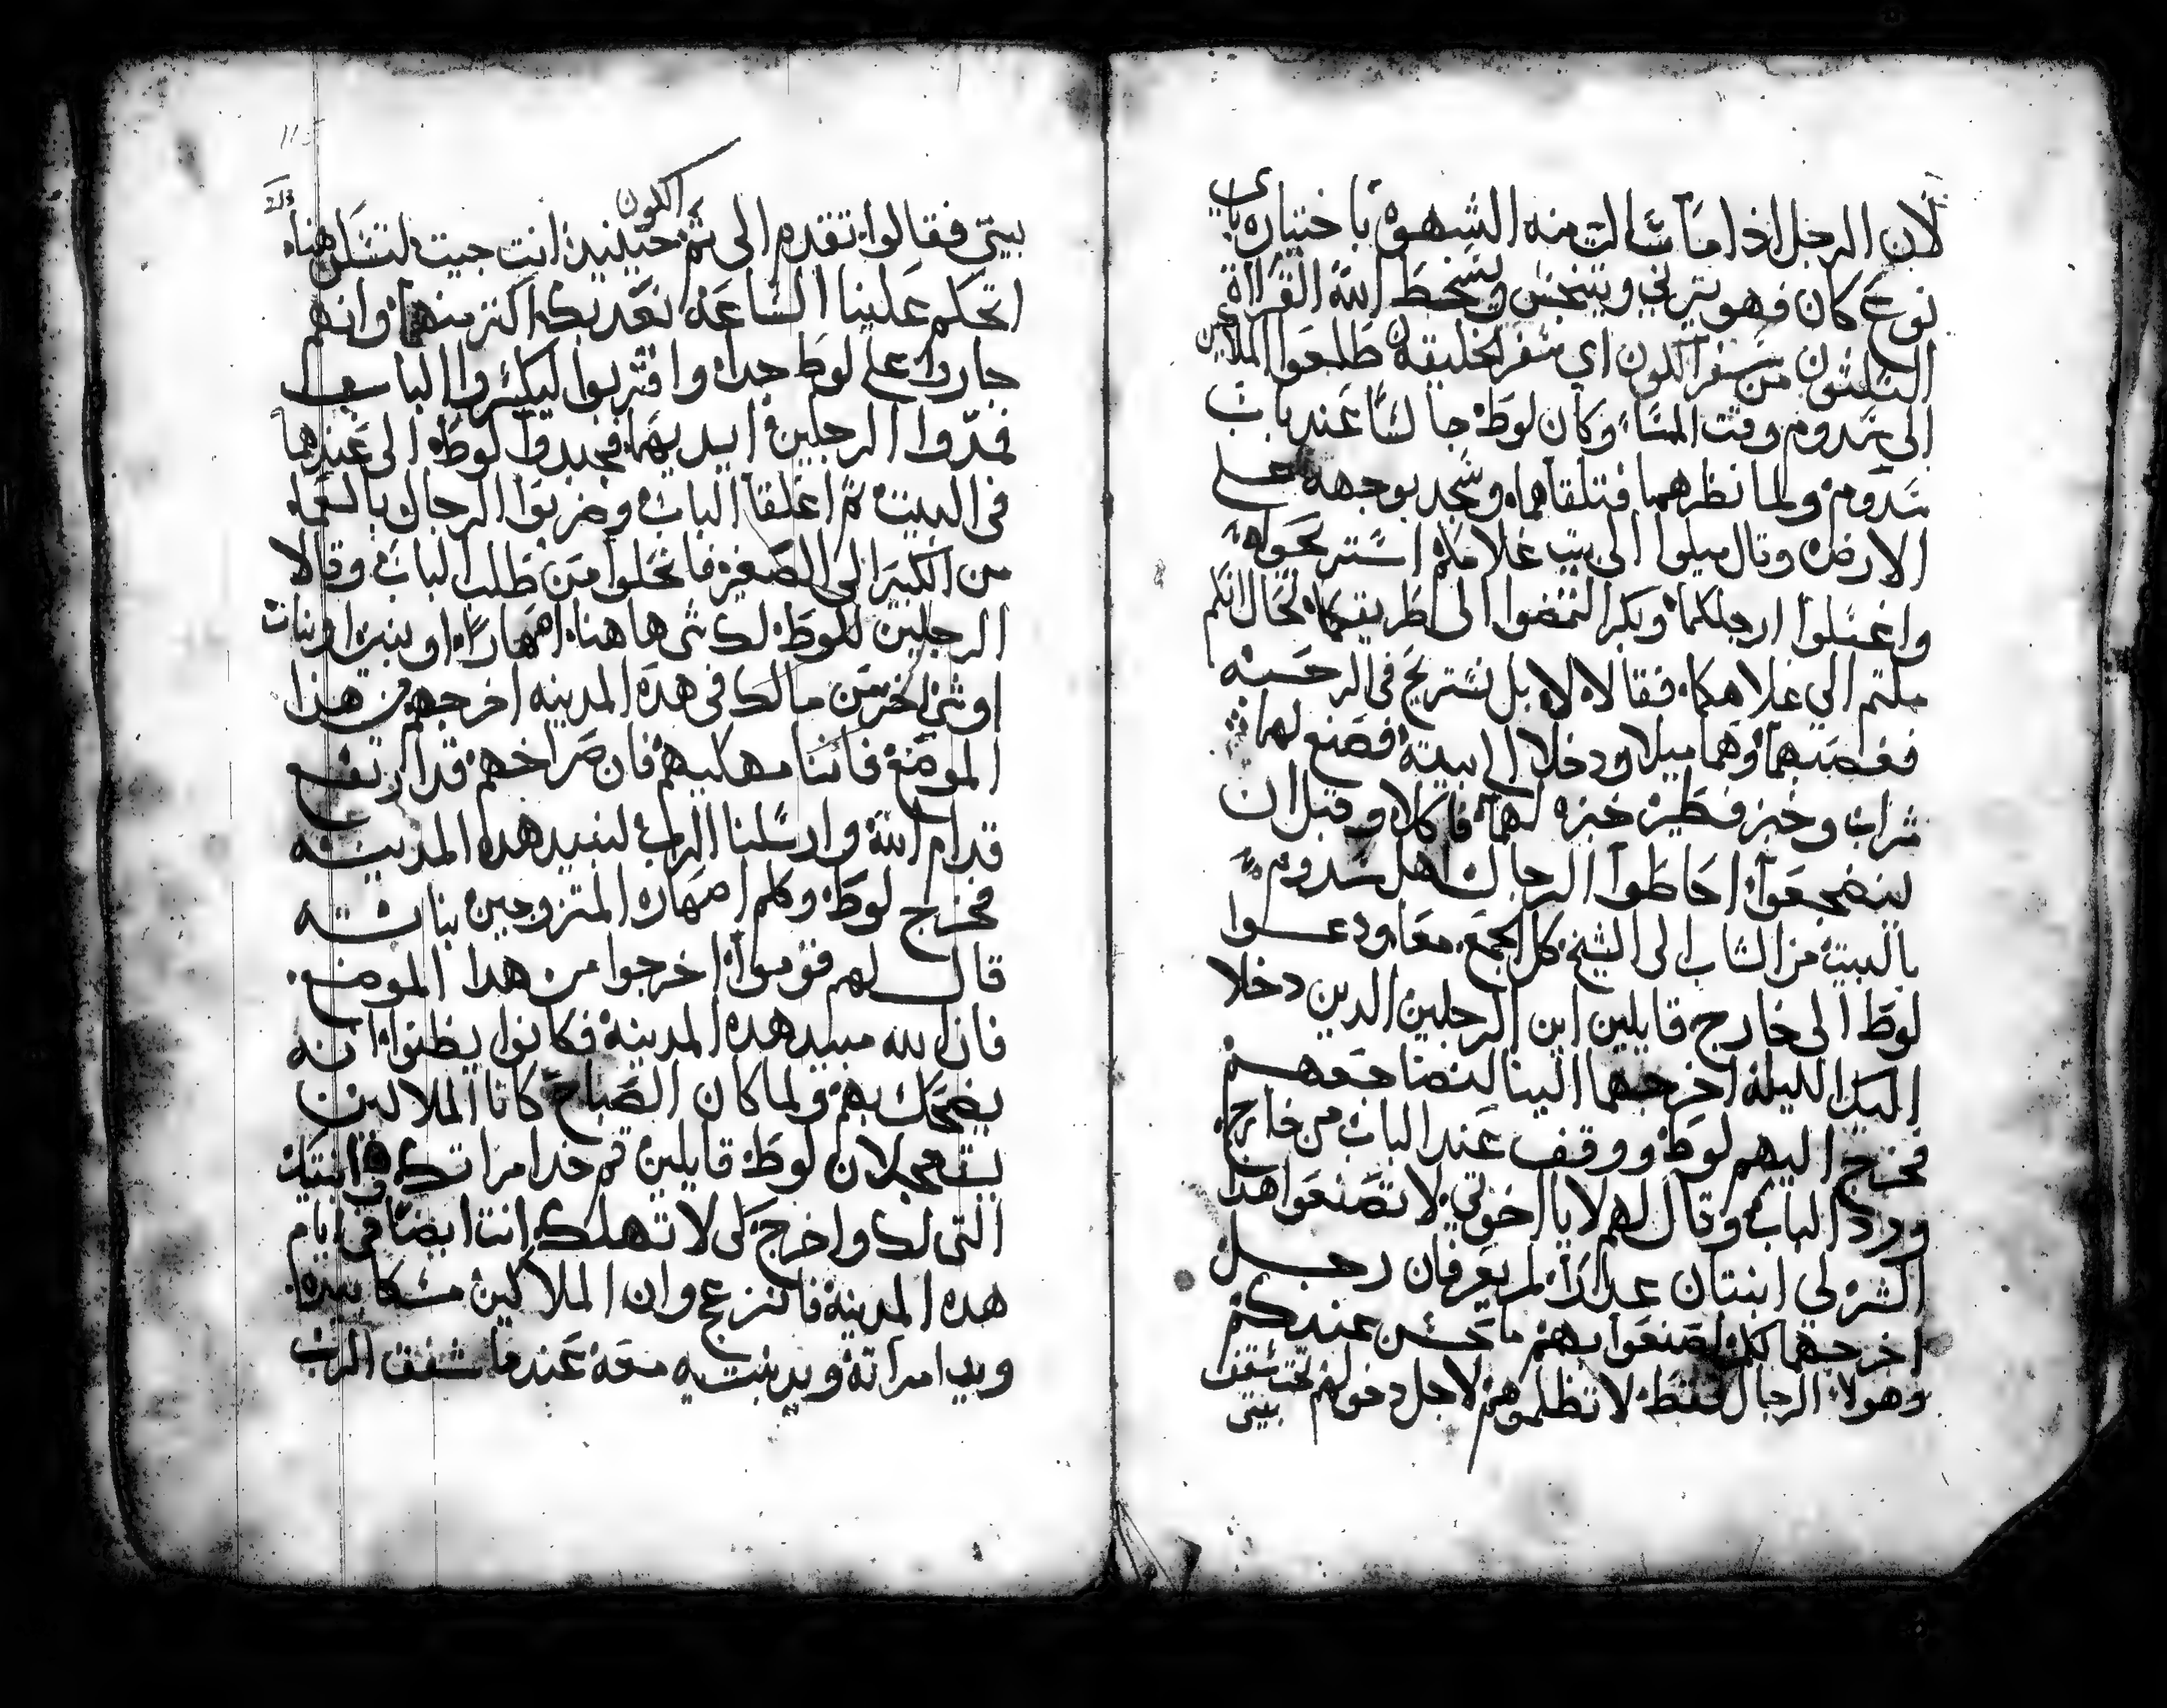 لان الرجل اذا ما سالت منه الشهوة باختياره باي
نوع كان فهو يزني ويتنجس ويسخط الله القراة
الثلثون من سفر الكون اي سفر الخليقة طلعوا الملاكين
الى سدوم وقت المسا وكان لوط جالسًا عند باب
سدوم ولما نظرهما فتلقاهما وسجد بوجهه على
الارض وقال ميلوا الى بيت غلامكم استريحوا
واغسلوا ارجلكما وبكرا لتمضوا الى طريقكما لحال انكم
ملتم الي غلامكما فقالا لا بل نستريح في الرحبه
فغصبهما وهما ميلا ودخلا الي بيته فصنع لهما
شراب وخبز فطير خبزه لهما فاكلا وقبل ان
ينضجعوا احاطوا الرجال اهل سدوم
بالبيت من الشاب الى الشيخ كل الجمع معا ودعوا
لوط الى خارج قايلين اين الرجلين الدين دخلا
اليك الليلة اخرجهما الينا لنضاجعهم
فخرج اليهم لوط ووقف عند الباب من خارج
ورد الباب وقال لهم لا يا اخوتي لا تصنعوا هذا
الشر لي ابنتان لم يعرفان رجل
اخرجهما لكم اصنعوا بهم ما تحسن عندكم
وهولا الرجال فقط لا تظلموهم لاجل دخولهم تحت سقف
بيتي
الكون
بيتي فقالوا تقدم الى ثم حينيذ انت جيت لتسكن هنا
اتحكم علينا الساعة نعدبك اكثر منهما وانهم
جاروا على لوط جدا واقتربوا ليكسروا الباب
فمدوا الرجلين ايديهما فجبدوا لوط الى عندهما
في البيت ثم اغلقا الباب وضربوا الرجال بالعما
من الكبير الى الصغير فانحلوا من طلب الباب وقالا
الرجلين للوط لك شي هاهنا اصهارًا او بنين او بنات
او شي اخر من مالك في هذه المدينه اخرجهم من هذا
الموضع فاننا مهلكيهم فان صراخهم قد ارتفع
قدام الله وارسلنا الرب لنبيد هده المدينه
فخرج لوط وكلم اصهاره المتزوجين بناته
قال لهم قوموا اخرجوا من هدا الموضع
فان الله مبيد هده المدينة فكانوا يظنوا انه
يضحك بهم ولما كان الصباح كانا الملاكين
يستعجلان لوط قايلين قم خد امراتك وابنتيك
التي لك واخرج لكي لا تهلك انت ايضًا في ايام
هده المدينة فانزعج وان الملاكين مسكا بيده
ويد امراته ويد بنتيه معه عندما شفق الرب